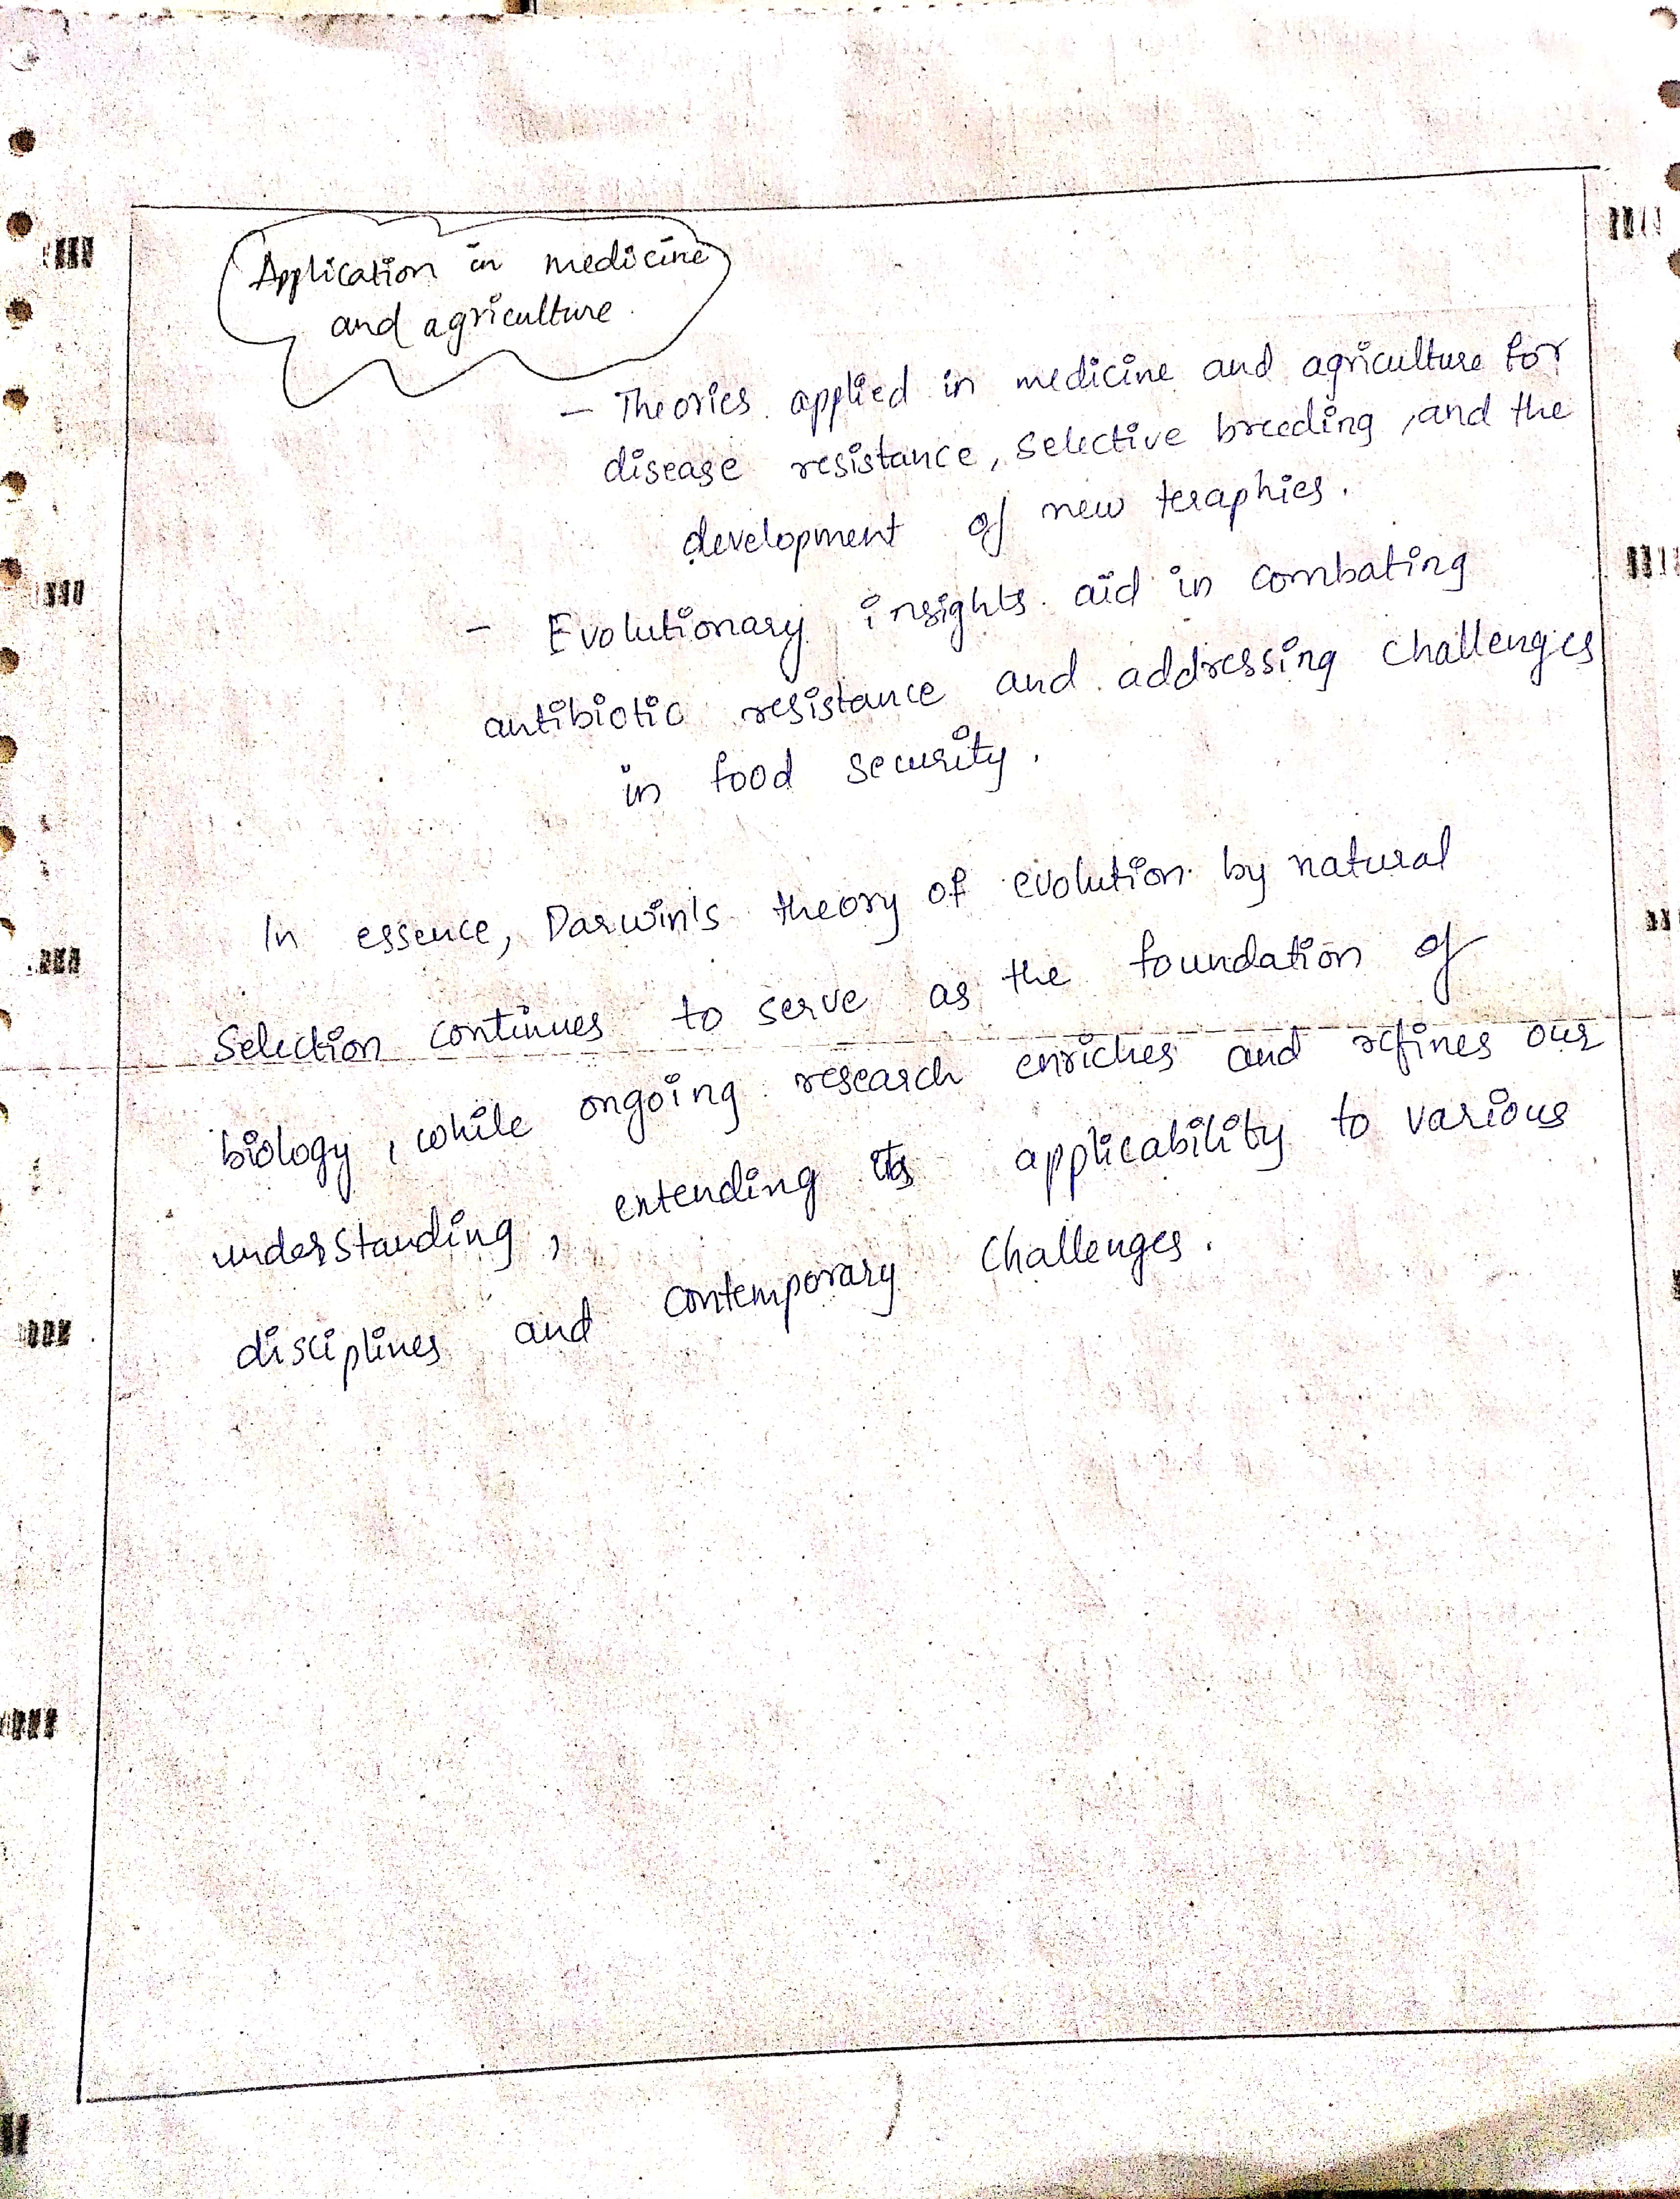 Application in medicine
and agriculture.
- Theories applied in medicine and agriculture for
disease resistance, selective breeding, and the
development of new teraphies.
- Evolutionary insights aid in combating
antibiotic resistance and addressing challenges
in food security.
In essence, Darwin's theory of evolution by natural
Selection continues to serve as the foundation of
biology, while ongoing research enriches and refines our
understanding, extending its applicability to various
disciplines and contemporary challenges.